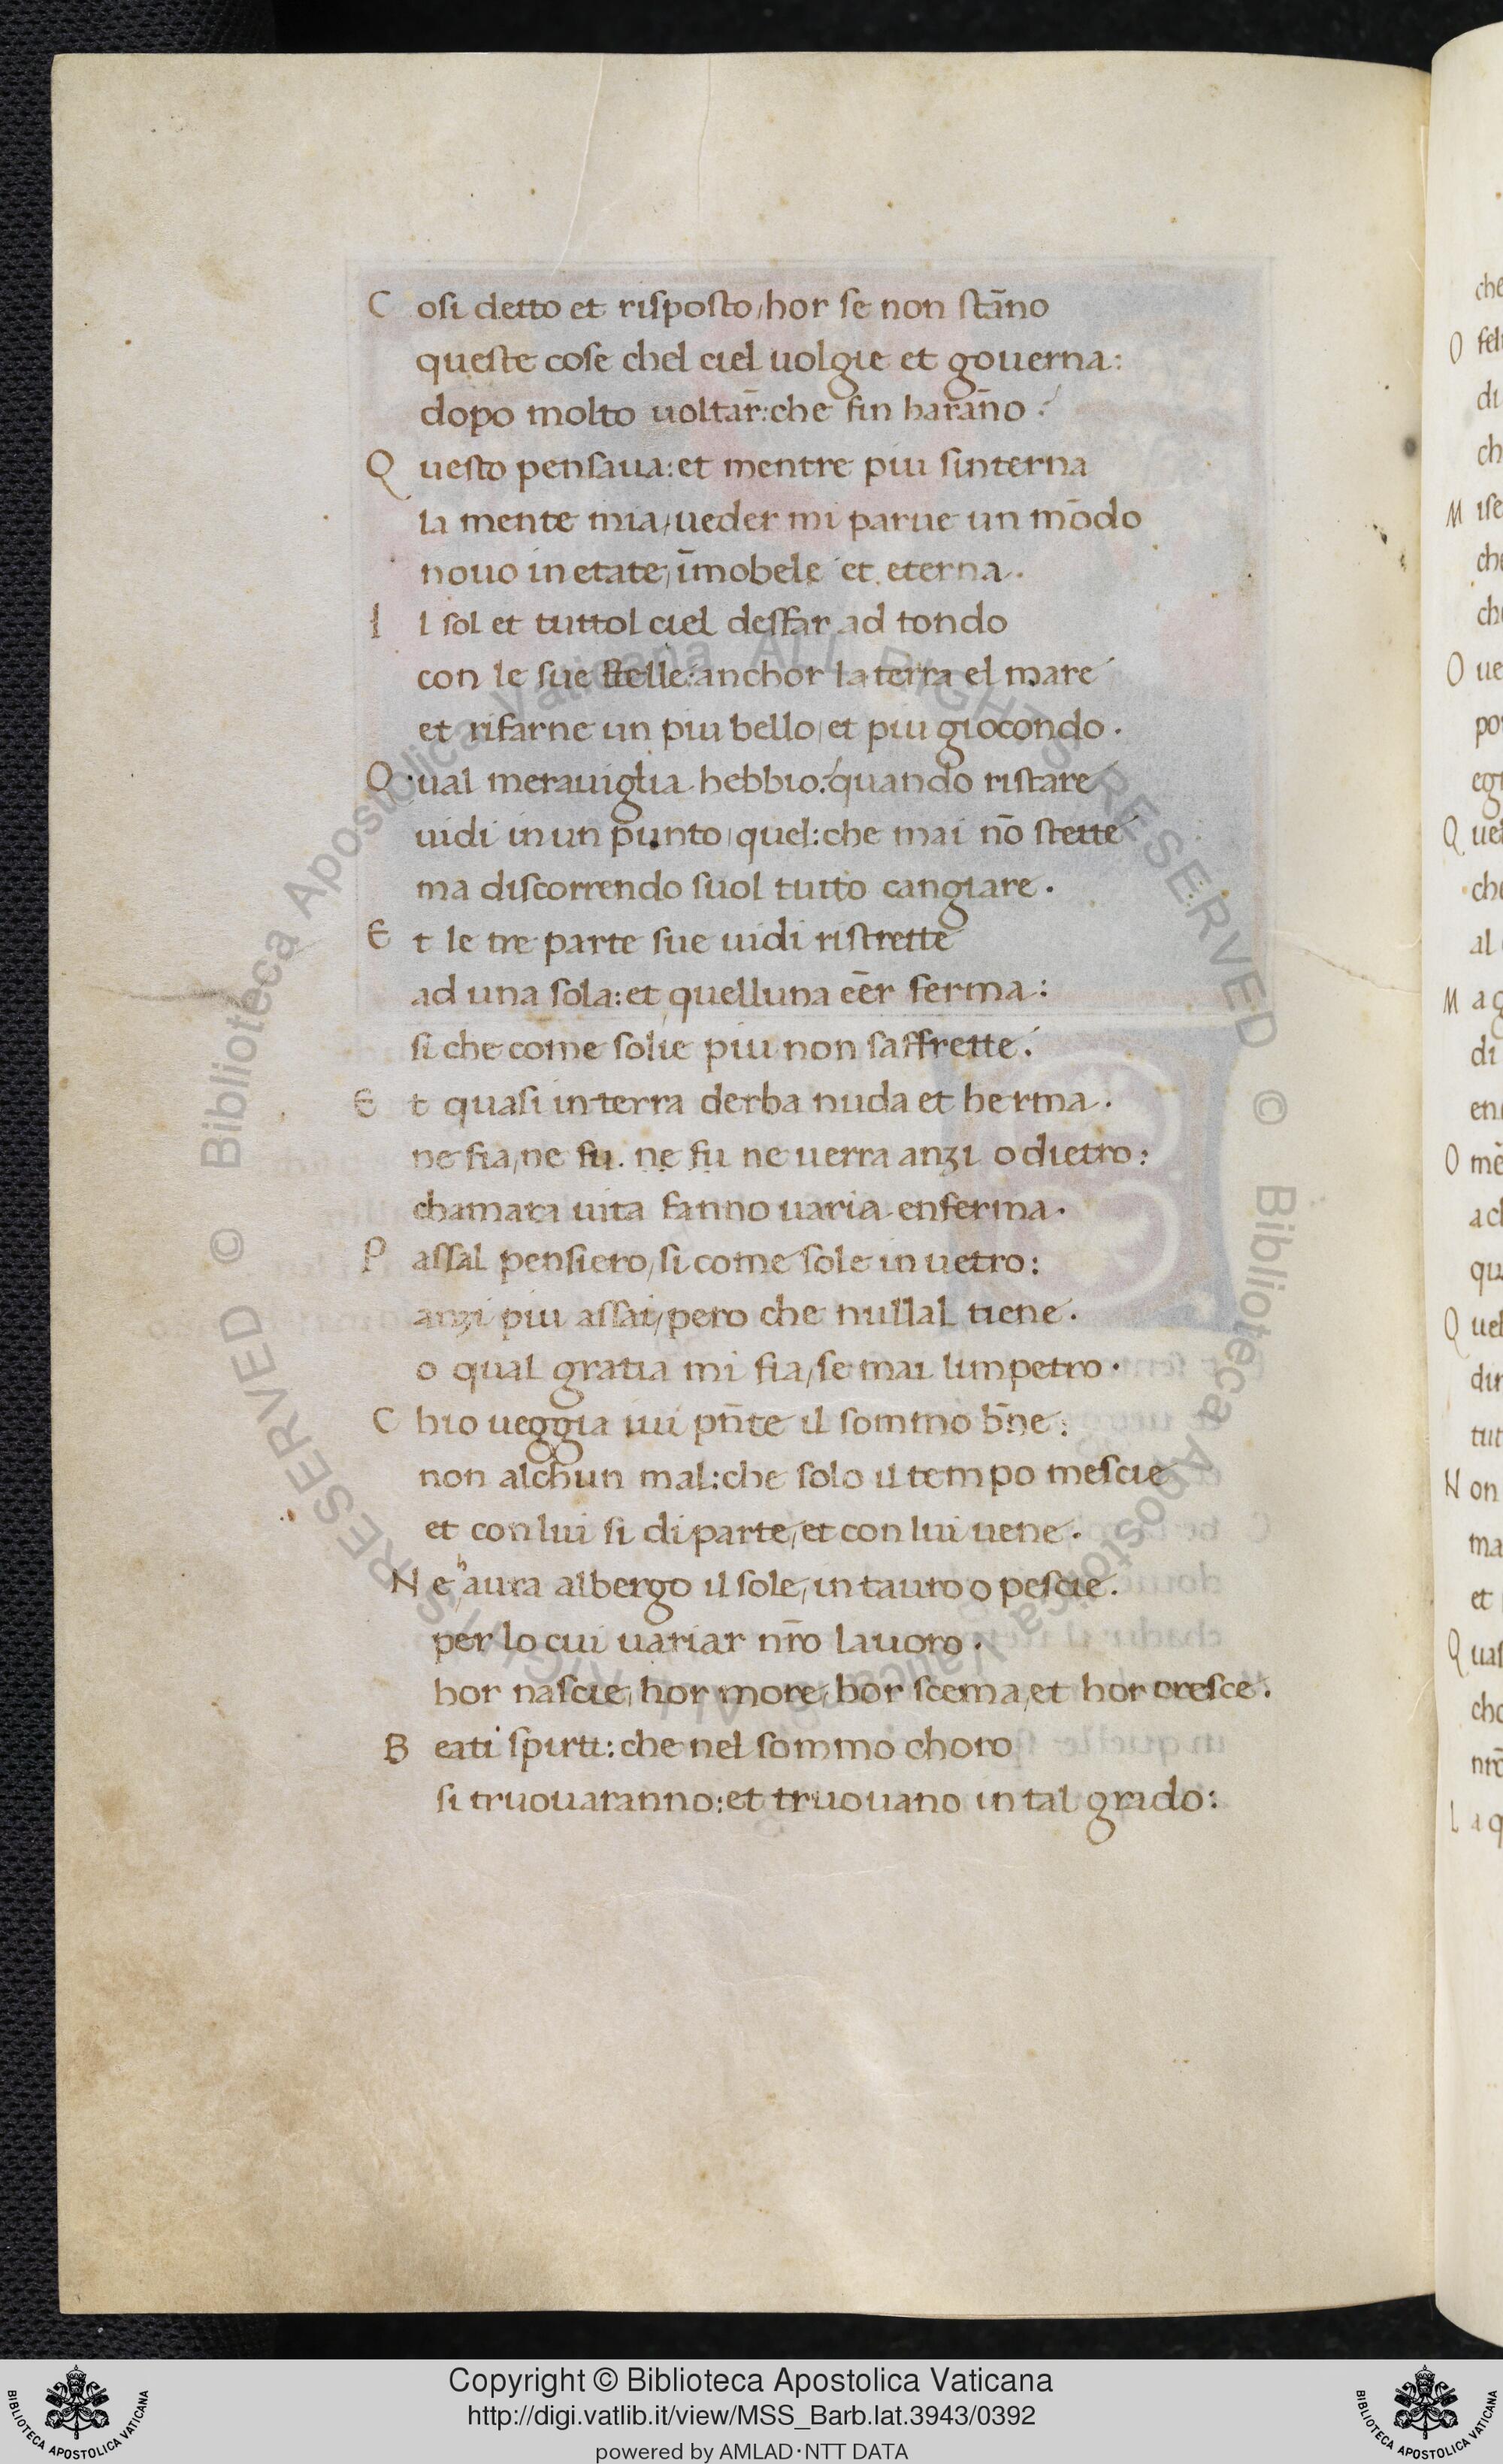 C osi detto et risposto/hor se non stāno
queste cose chel ciel uolgie et gouerna:
dopo molto uoltar̄:che fin harāno :
Q uesto pensaua:et mentre piu sinterna
la mente mia/ueder mi parue un mōdo
nouo in etate/īmobele et eterna.
I l sol et tuttol ciel desfar ad tondo
con le sue stelle:anchor la terra el mare
et rifarne un piu bello/et piu giocondo.
Q ual merauiglia hebbio:quando ristare
uidi in un punto/quel:che mai nō stette
ma discorrendo suol tutto cangiare.
E t le tre parte sue uidi ristrette
ad una sola:et quelluna eēr ferma:
si che come solie piu non saffrette.
E t quasi in terra derba nuda et herma.
ne fia/ne fu. ne fu ne uerra anzi o dietro:
chamara uita fanno uaria enferma.
P assal pensiero/si come sole in uetro:
anzi piu assai/pero che nullal tiene.
o qual gratia mi fia/se mai limpetro.
C hio ueggia iui pn̄te il sommo bn̄e:
non alchun mal:che solo il tempo mescie
et con lui si diparte/et con lui uene.
N e haura albergo il sole/in tauro o pescie.
per lo cui uariar nr̄o lauoro.
hor nascie/hor more/hor scema/et hor cresce.
B eati spirti:che nel sommo choro
si truouaranno:et truouano in tal grado:
che
O feli
di
ch
M ise
che
che
O ue
po
egi
Q uel
che
al
M ag
di
en
O mē
ach
qu
Q uel
dir
tut
N on
ma
et
Q uas
cho
nr̄o
L a q
© Biblioteca Apostolica Vaticana ALL RIGHTS RESERVED © Biblioteca Apostolica Vaticana ALL RIGHTS RESERVED
Copyright © Biblioteca Apostolica Vaticana
http://digi.vatlib.it/view/MSS_Barb.lat.3943/0392
powered by AMLAD·NTT DATA
BIBLIOTECA APOSTOLICA VATICANA
BIBLIOTECA APOSTOLICA VATICANA